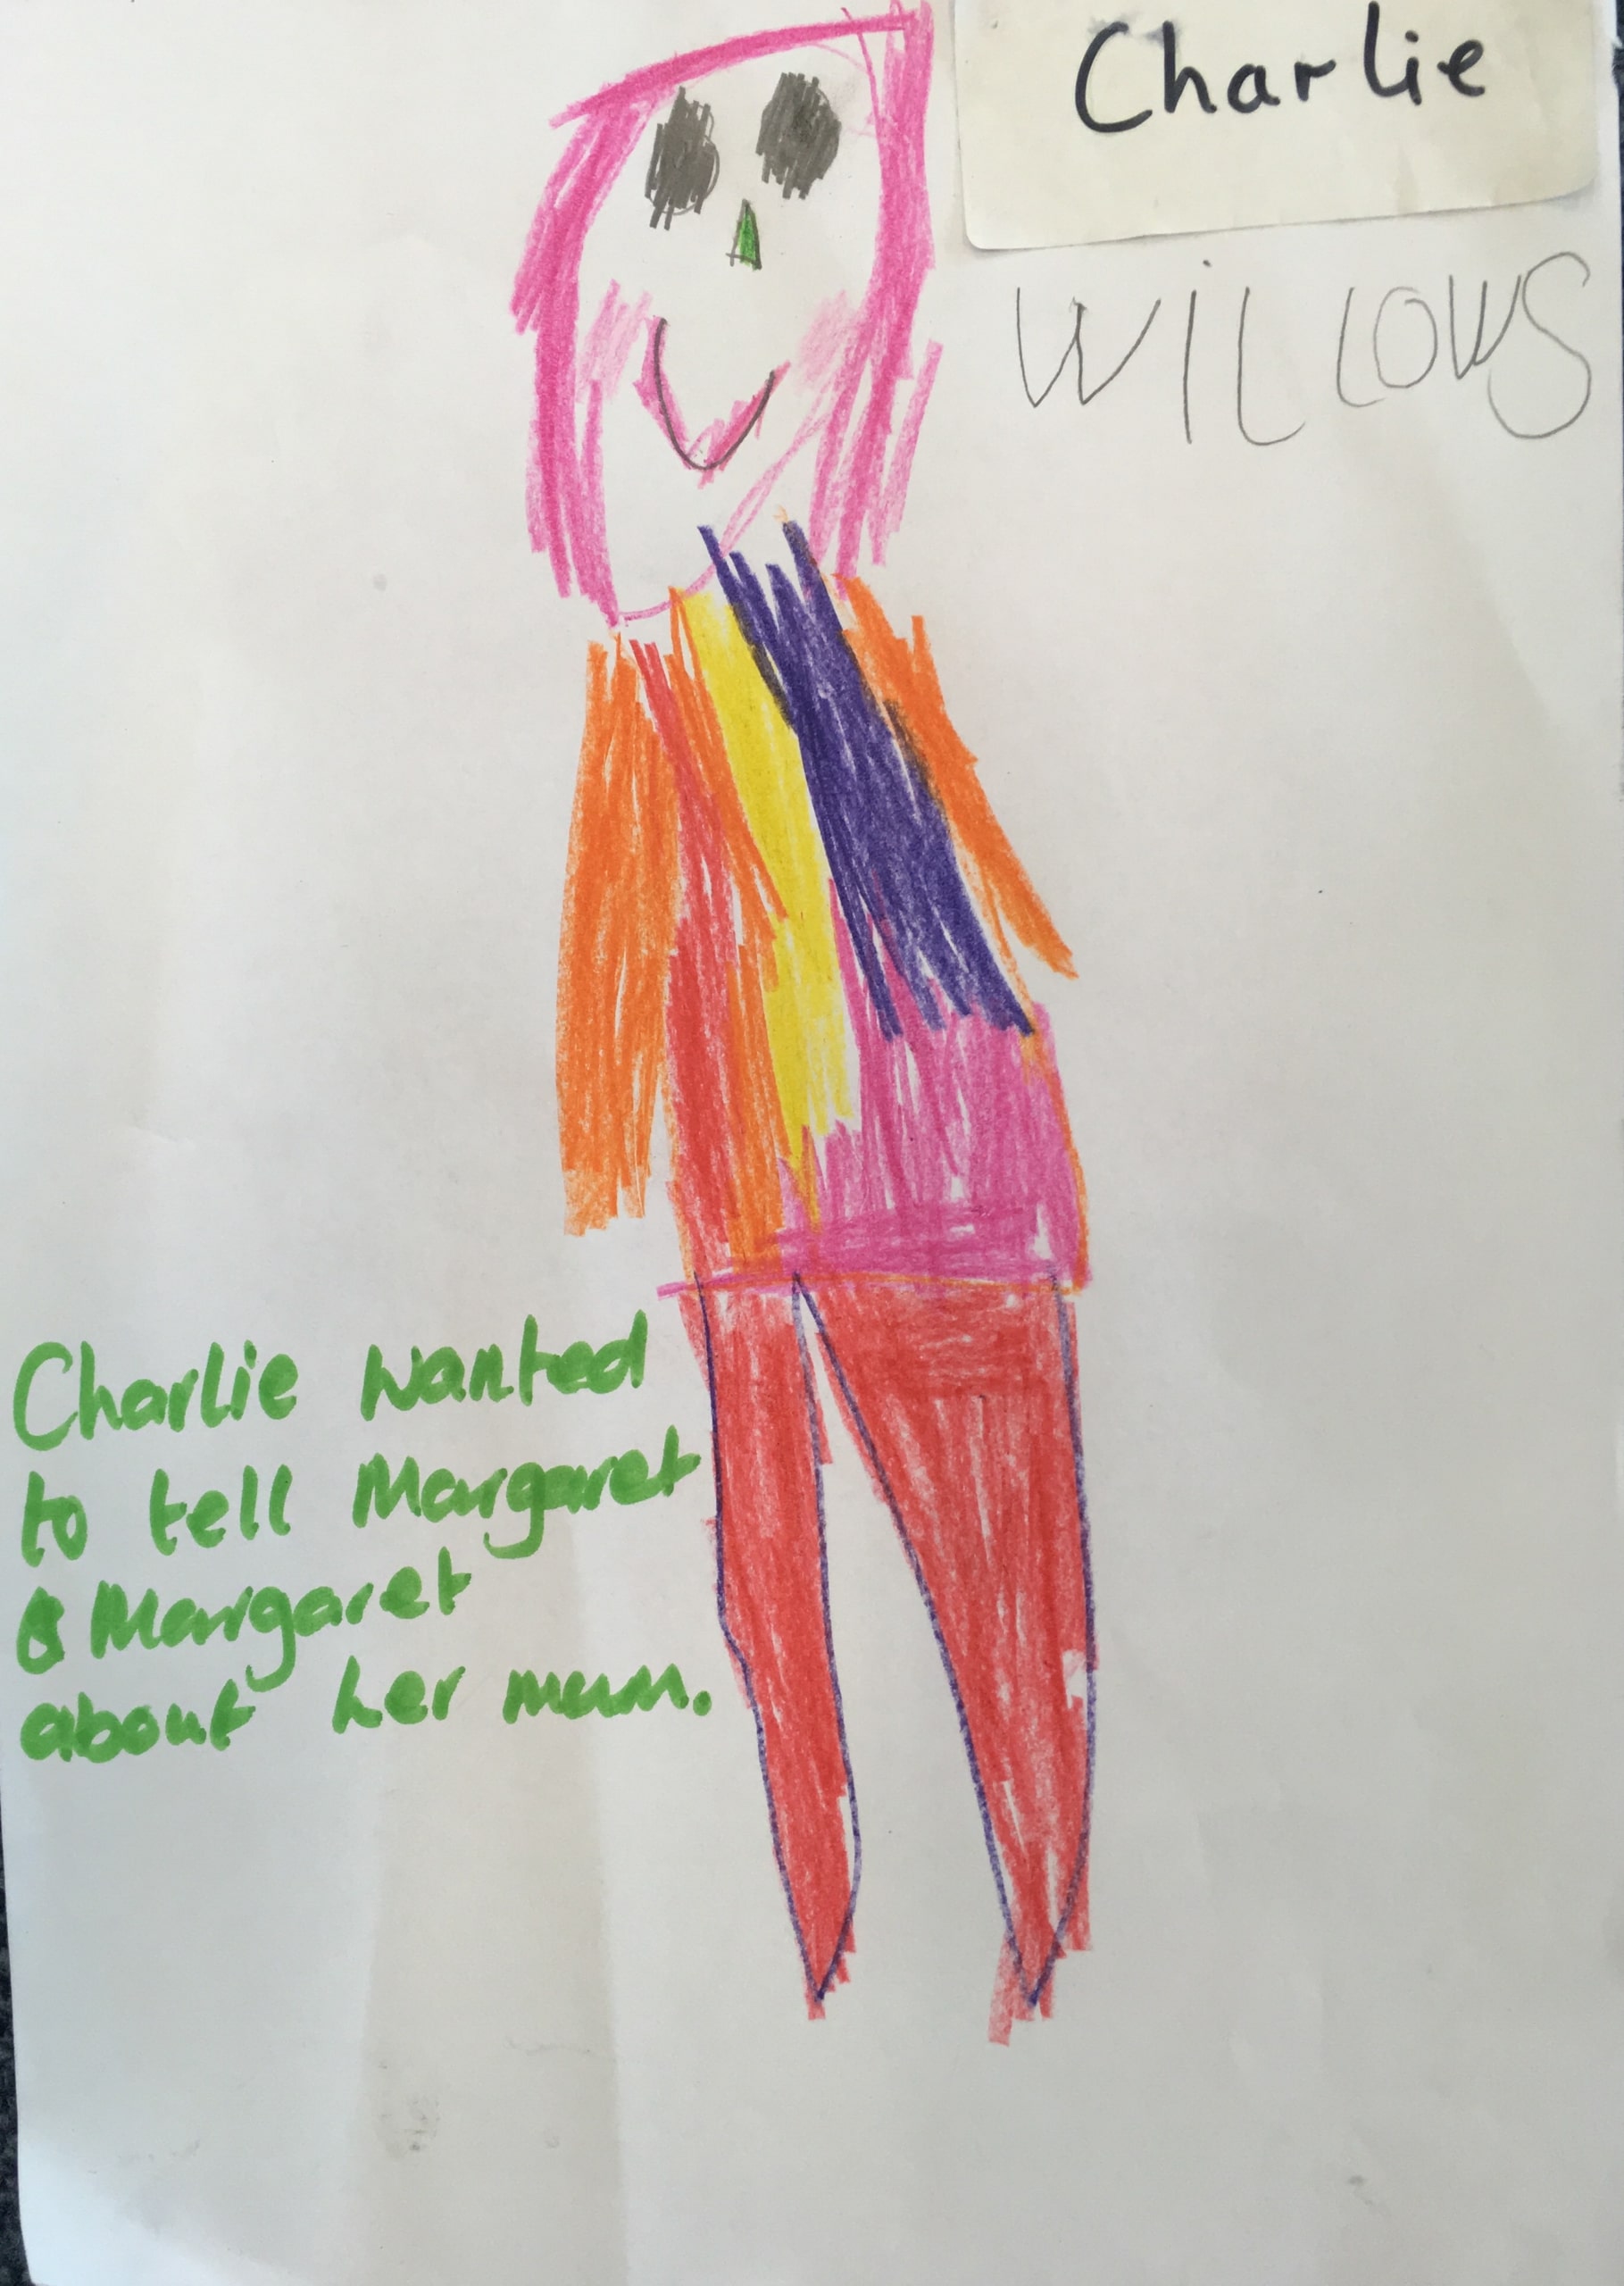 Charlie
WILLOWS
Charlie wanted
to tell Margaret
& Margaret
about her mum.